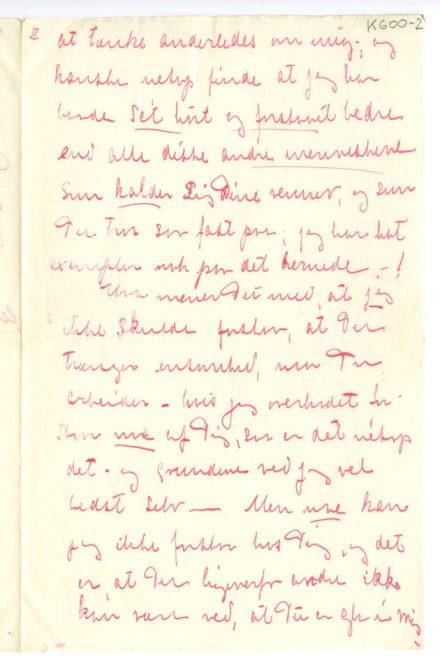 II
K600-2
at tænke anderledes om mig; og
kanske netop finde at jeg har
baade Sét hört og forstaaet bedre
end alle disse andre
Som kalder Sig Dine venner, og som
Du tror saa fast paa; jeg har hat
exempler nok paa det hernede –!
Hva mener Du med, at jeg
ikke Skulde forstaa, at Du
trænger ensomhed, naar Du
arbeider – hvis jeg overhodet för-
staar noe af Dig, saa er det netop
det – og grundene ved jeg vel
bedst Selv — Men noe kan
jeg ikke forstaa hos Dig, og det
er, at Du ligeoverfor andre ikke
kan være ved, at Du er gla i mig,